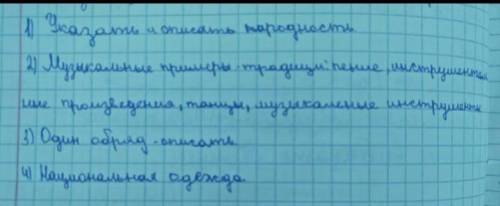 1) Указать и описать народность
2) Музыкальные примеры традиций: пение, инструменталь
ные произведения, танцы, музыкальные инструменты
3) Один обряд - описать
4) Национальная одежда